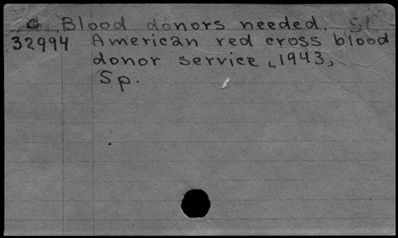 Blood donors needed.
32994 American red cross blood
donor service, 1943,
5p.